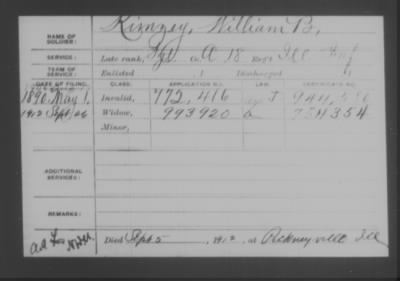 NAME OF SOLDIER: Kimzey, William B.,
SERVICE: Late rank, Sgt. Co. A 18 Regt Ill Inf
TERM OF SERVICE: Enlisted , 1 Discharged , 1
DATE OF FILING. CLASS. APPLICATION NO. LAW. CERTIFICATE NO.
1890, May 1. Invalid, 772,416 J
1912 Sept 26 Widow, 993920 a 754354
Minor,
ADDITIONAL SERVICES:
REMARKS:
Died Sept 5, 1912, at Pickneyville Ill